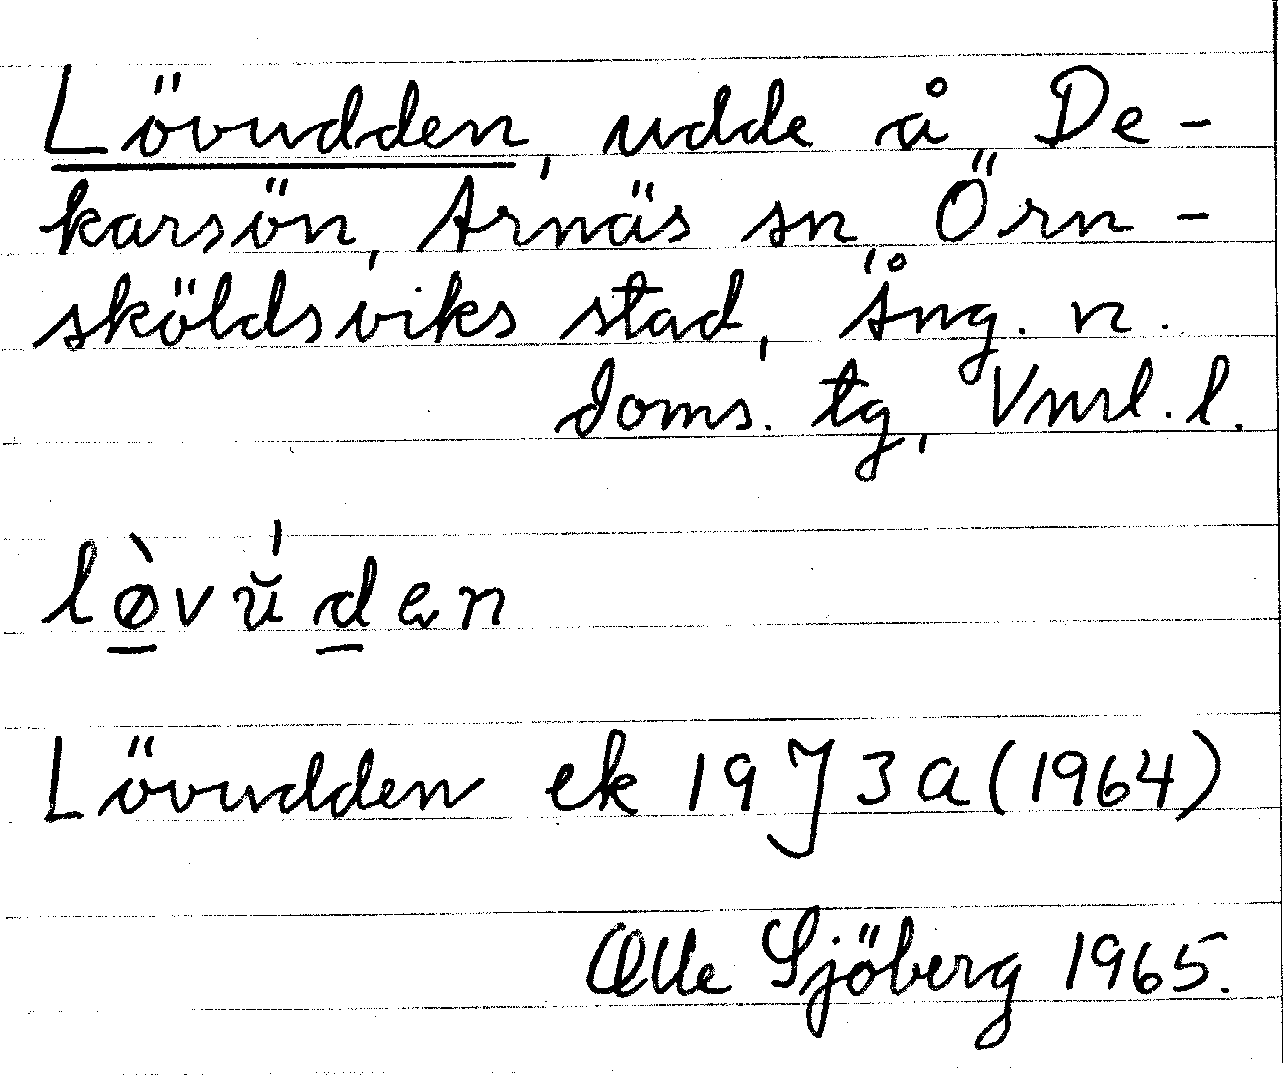 Lövudden, udde å De-
karsön, Arnäs sn, Örn-
sköldsviks stad, Ång. n.
doms. tg, Vnrl. l.
lø̠̀vŭ́d̠en
Lövudden ek 19 J 3 a (1964)
Olle Sjöberg 1965.